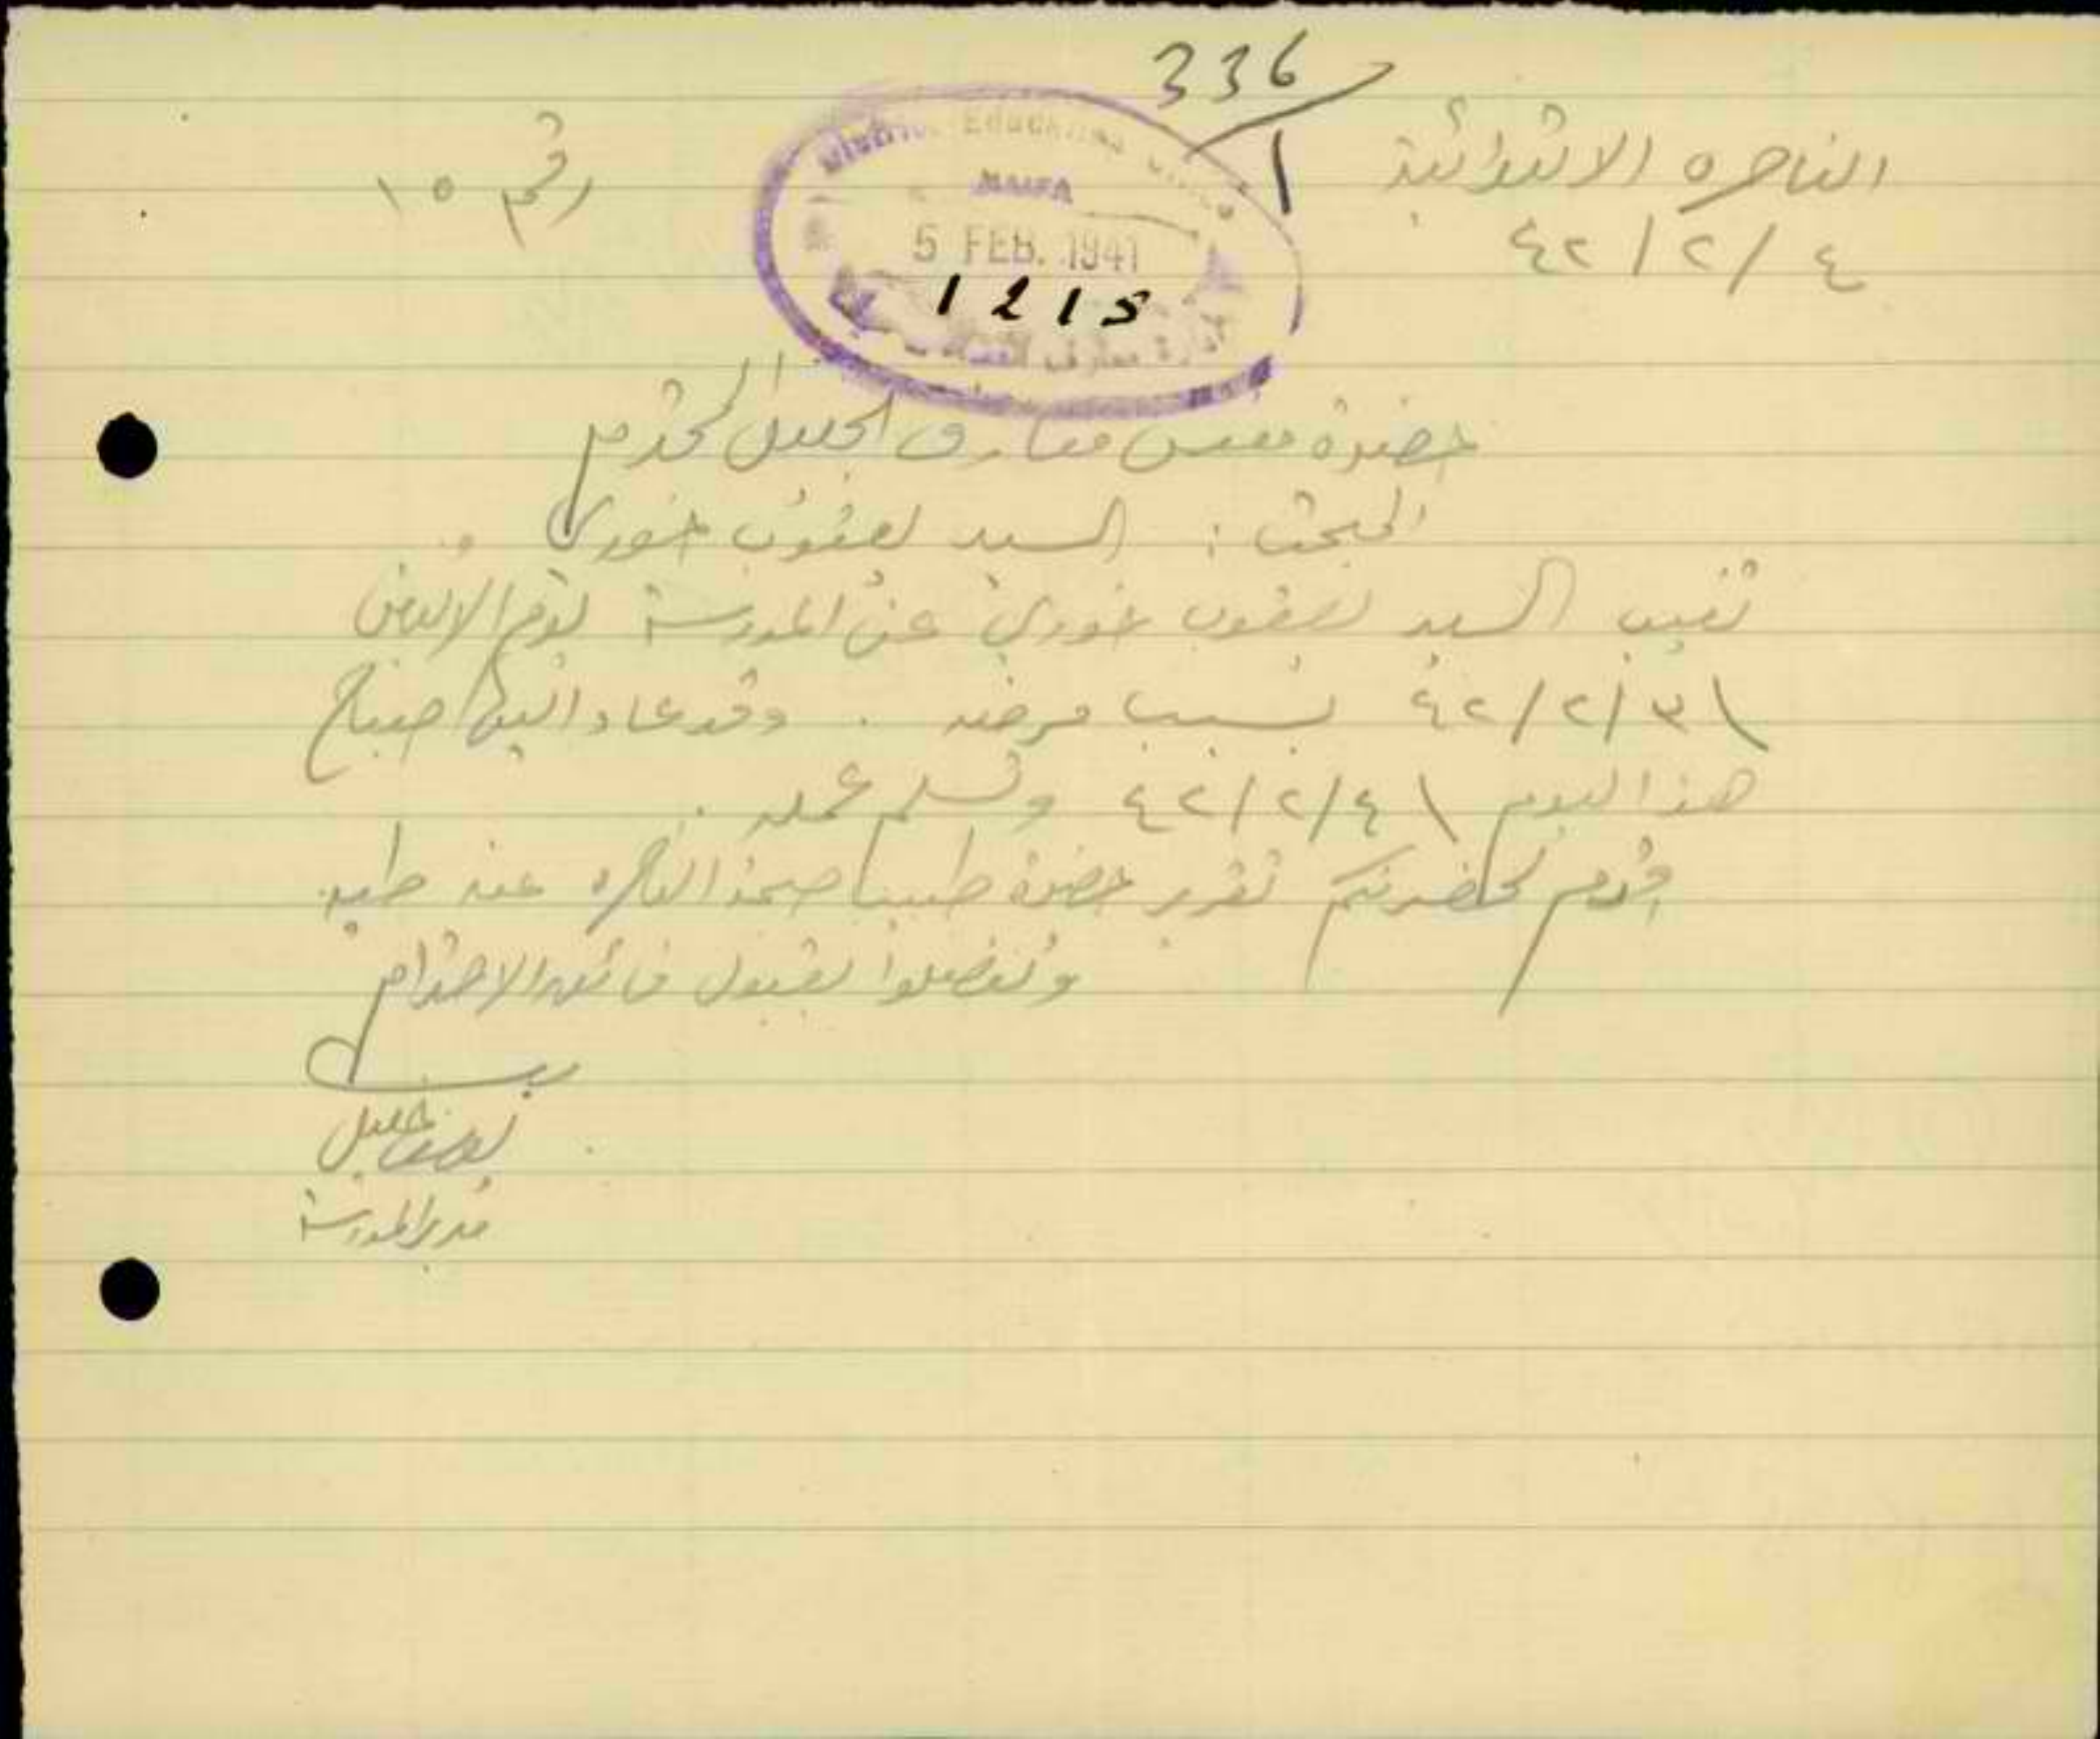 336/1
الناصره الابتدائية
٤/٢/٤٢
رقم ١٥
District Education Office
HAIFA
5 FEB. 1941
1215
ادارة معارف
حضرة مفتش معارف الجليل المحترم
المبحث : السيد يعقوب خوري .
تغيب السيد يعقوب خوري عن المدرسة يوم الاثنين
٤٢/٢/٣١ بسبب مرضه . وقد عاد اليها صباح
هذا اليوم ٤٢/٢/٤١ وتسلم عمله .
اقدم لحضرتكم تقرير حضرة طبيب صحة الناصره عنه طيه .
وتفضلوا بقبول فائق الاحترام
يوسف خليل
مدير المدرسة